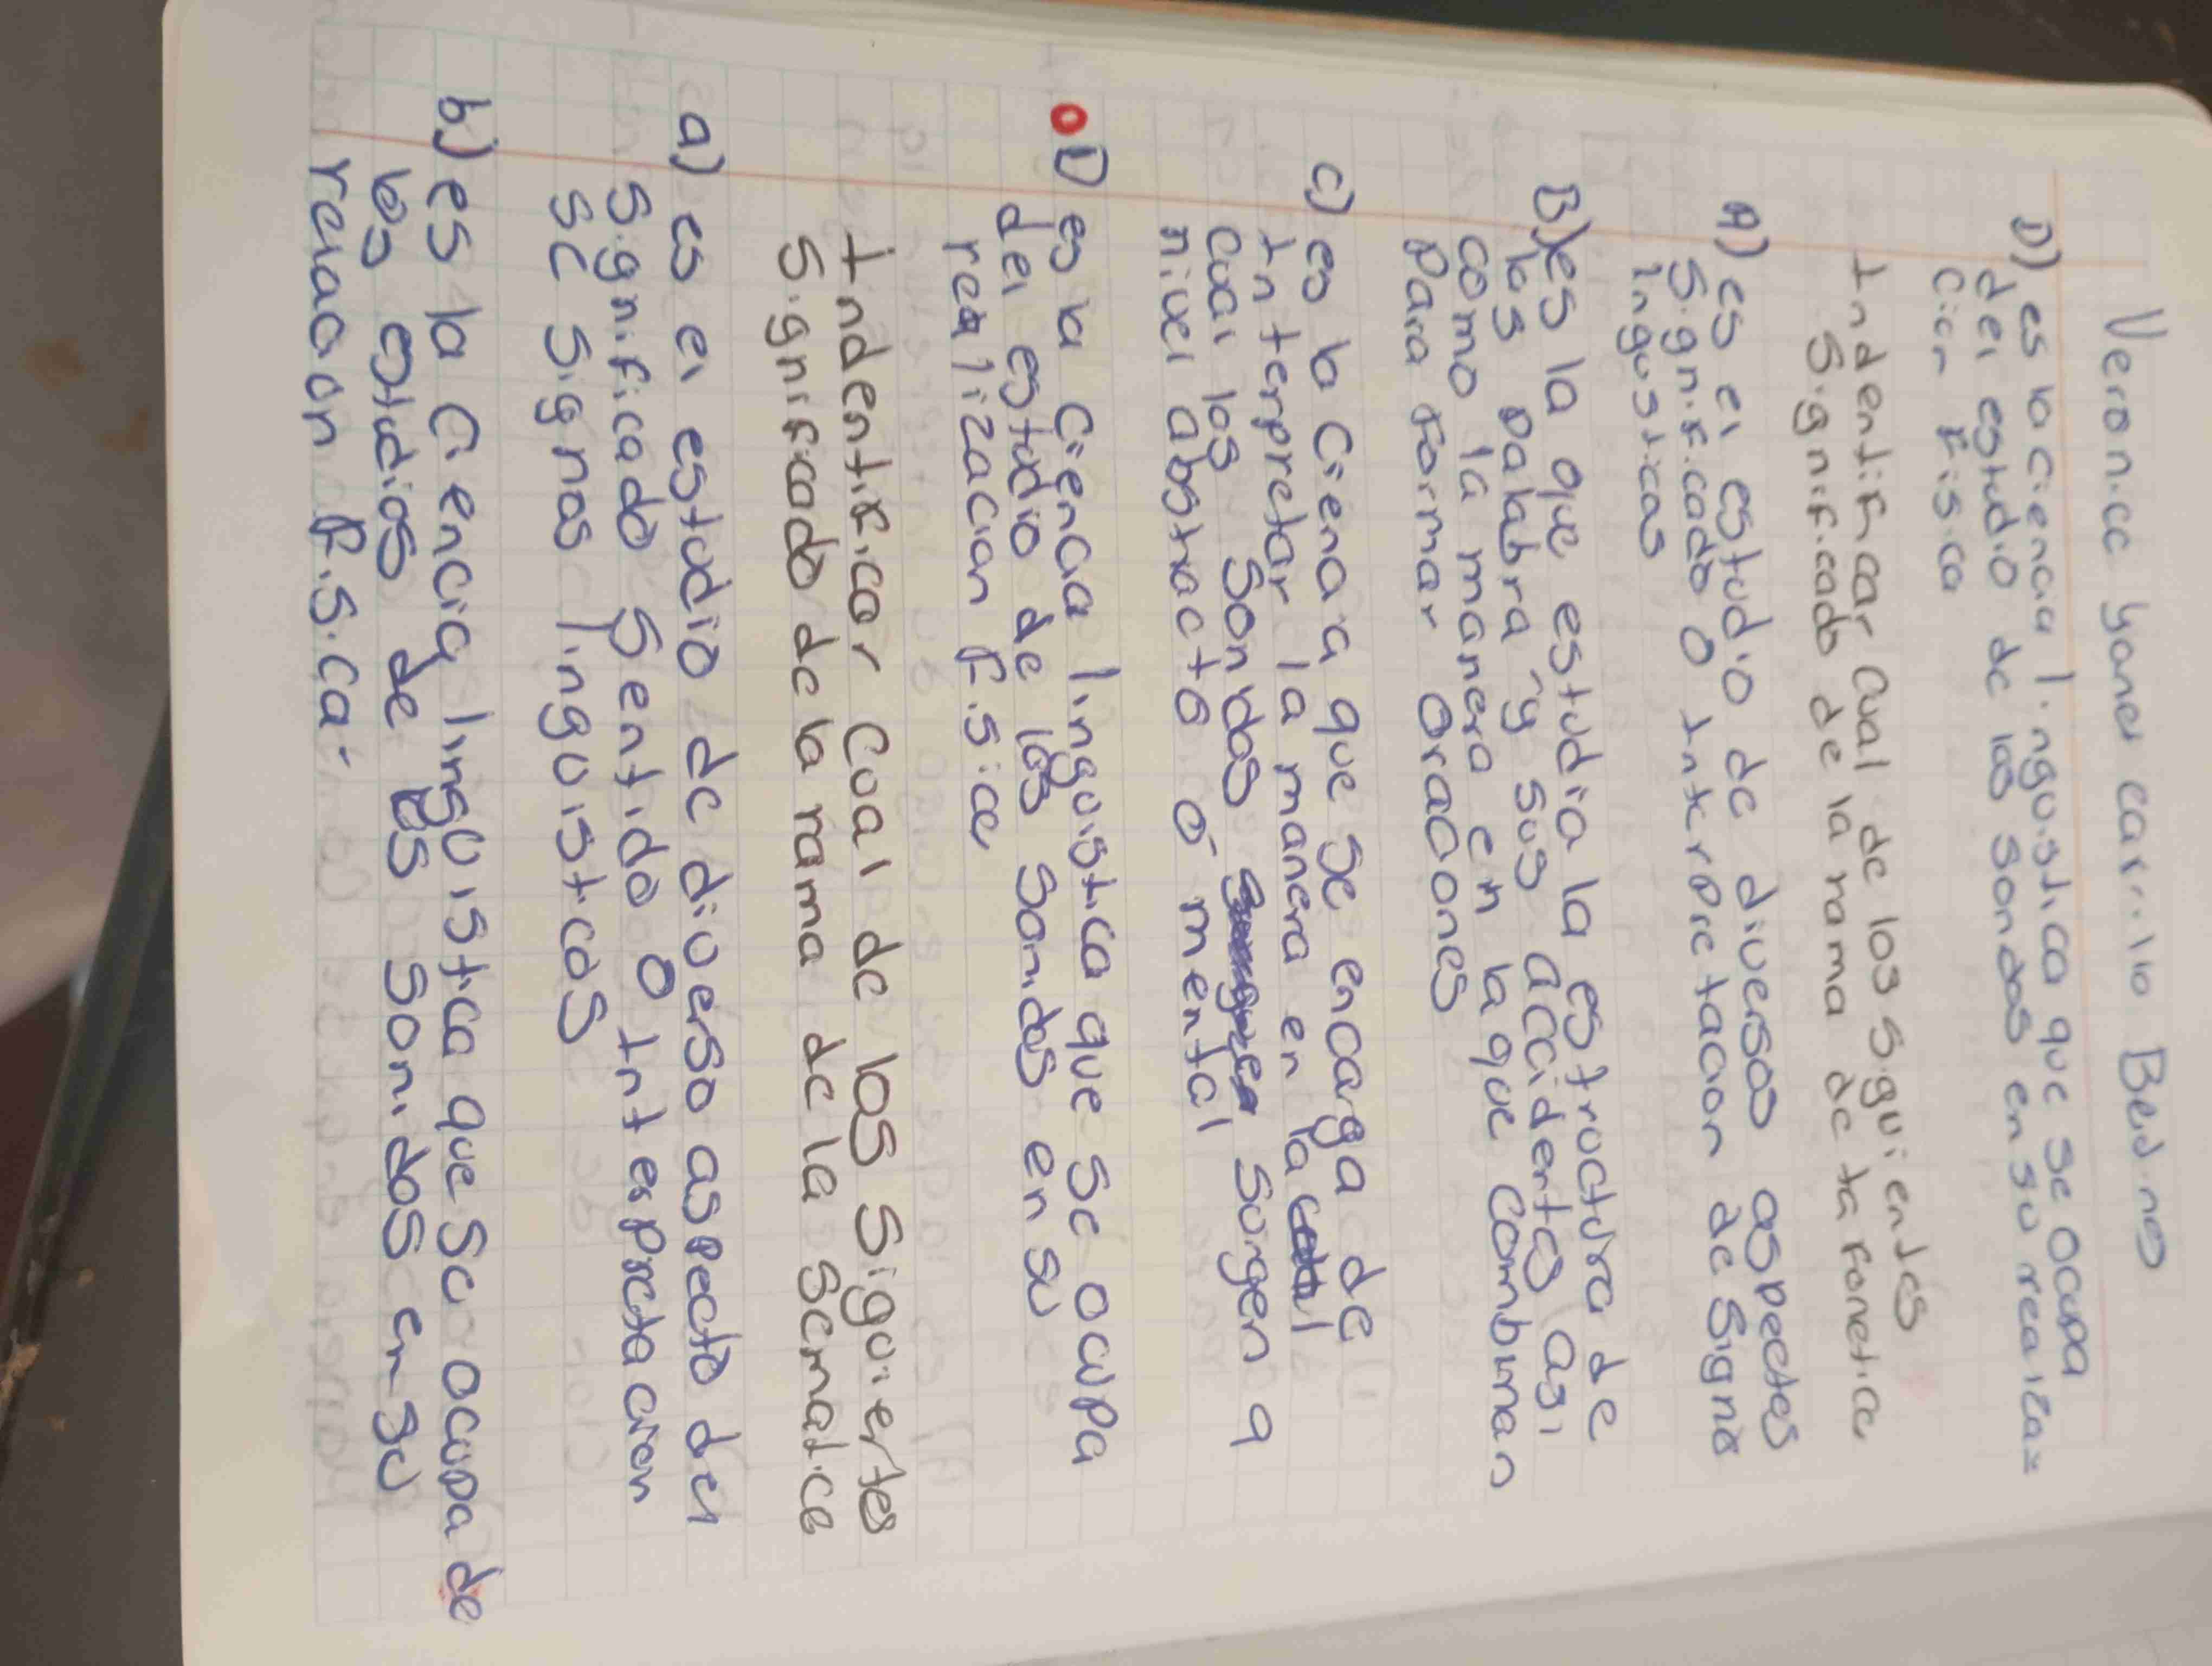 Veronica Yanet carrillo Bedino
D) es la ciencia lingüística que se ocupa
del estudio de los sonidos en su realiza=
ción Física
Indentificar cual de los siguientes
Significado de la rama de la Fonetica
A) es el estudio de diversos aspectos
Significado o interpretacion de signo
lingusticas
B) es la que estudia la estructura de
las palabra y sus accidentes asi
como la manera en la que combinan
Para Formar Oraciones
c) es la Ciencia que se encarga de
Interpretar la manera en la
cual los Sonidos surgen a
nivel abstracto o mental
D es la Ciencia lingüistica que se ocupa
del estudio de los sonidos en su
realizacion Fisica
Indentificar Cual de los siguientes
Significado de la rama de la Sematica
a) es el estudio de diverso aspecto del
Significado Sentido o Interpretacion
se Signos linguistcos
b) es la Ciencia linguistica que se ocupa de
los estudios de los sonidos en su
relacion Fisica